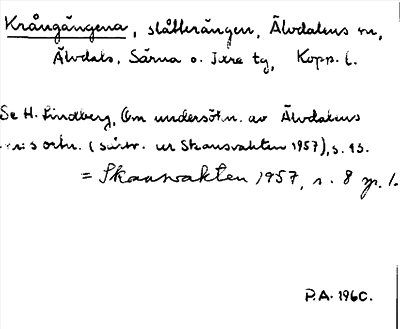 Krångångena, slåtterängen, Älvdalens sn,
Älvdals, Särna o. Idre tg, Kopp. l.
Se H. Lindberg, Om undersökn. av Älvdalens
ortn. (särtr. ur Skansvakten 1957), s. 13.
= Skansvakten 1957, s. 8 sp. 1.
P.A. 1960.